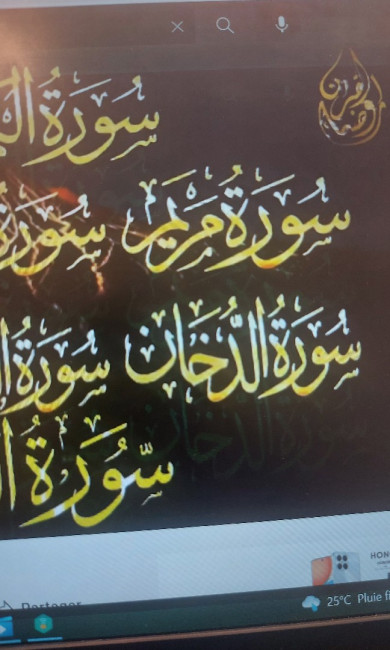 سورة
سورة مريم سورة
سورة الدخان سورة
سورة
Partager
HON
25°C Pluie fi